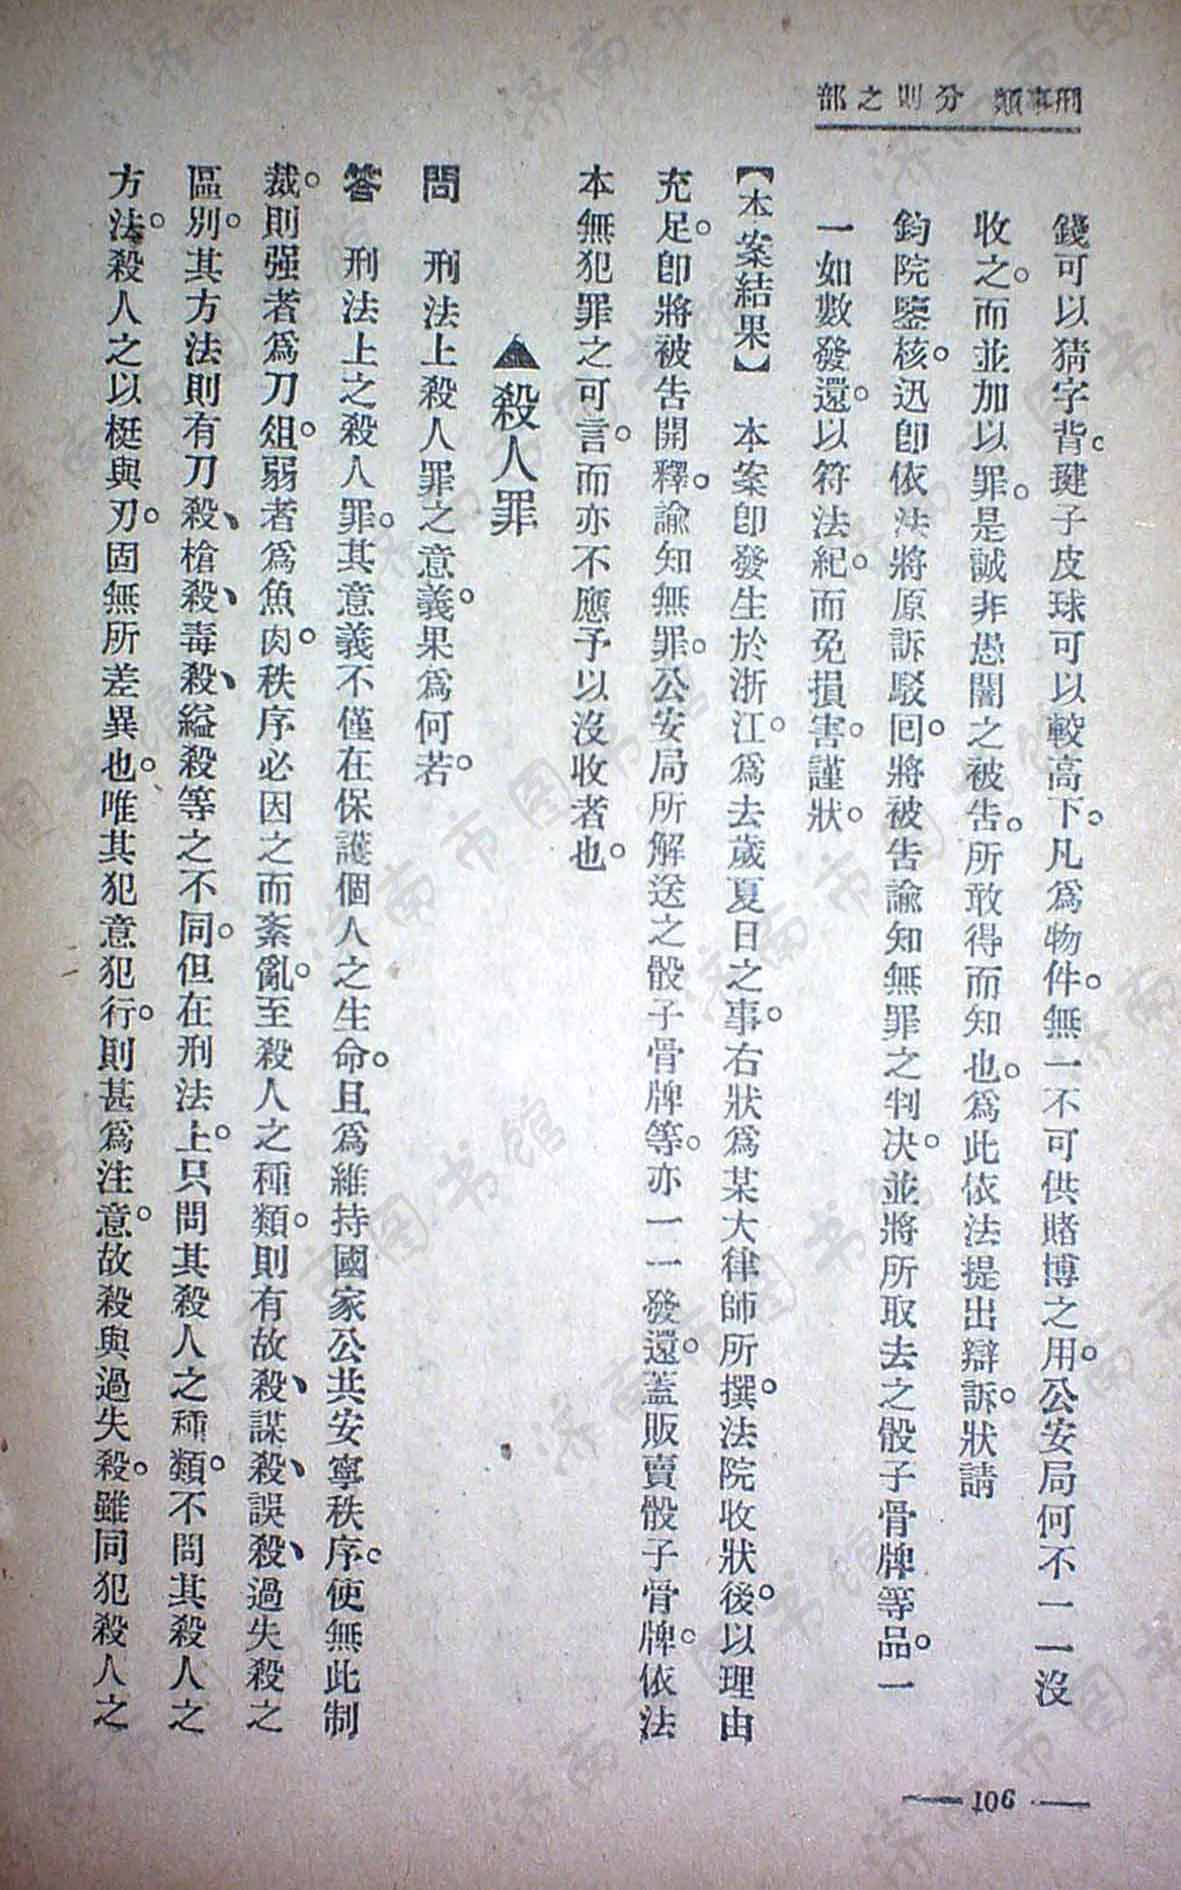 刑事類 分則之部
錢可以猜字背。毽子皮球可以較高下。凡爲物件。無一不可供賭博之用。公安局何不一一沒
收之。而並加以罪。是誠非愚闇之被告。所敢得而知也。爲此依法提出辯訴。狀請
鈞院鑒核。迅卽依法將原訴駁回。將被告諭知無罪之判决。並將所取去之骰子骨牌等品。一
一如數發還。以符法紀。而免損害。謹狀。
【本案結果】 本案卽發生於浙江。爲去歲夏日之事。右狀爲某大律師所撰。法院收狀後。以理由
充足。卽將被告開釋。諭知無罪。公安局所解送之骰子骨牌等。亦一一發還。蓋販賣骰子骨牌。依法
本無犯罪之可言。而亦不應予以沒收者也。
▲殺人罪
問 刑法上殺人罪之意義。果爲何若。
答 刑法上之殺人罪。其意義不僅在保護個人之生命。且爲維持國家公共安寧秩序。使無此制
裁。則强者爲刀俎。弱者爲魚肉。秩序必因之而紊亂。至殺人之種類。則有故殺、謀殺、誤殺、過失殺之
區別。其方法則有刀殺、槍殺、毒殺、縊殺等之不同。但在刑法上。只問其殺人之種類。不問其殺人之
方法。殺人之以梃與刃。固無所差異也。唯其犯意犯行。則甚爲注意。故殺與過失殺。雖同犯殺人之
106
济南市图书馆